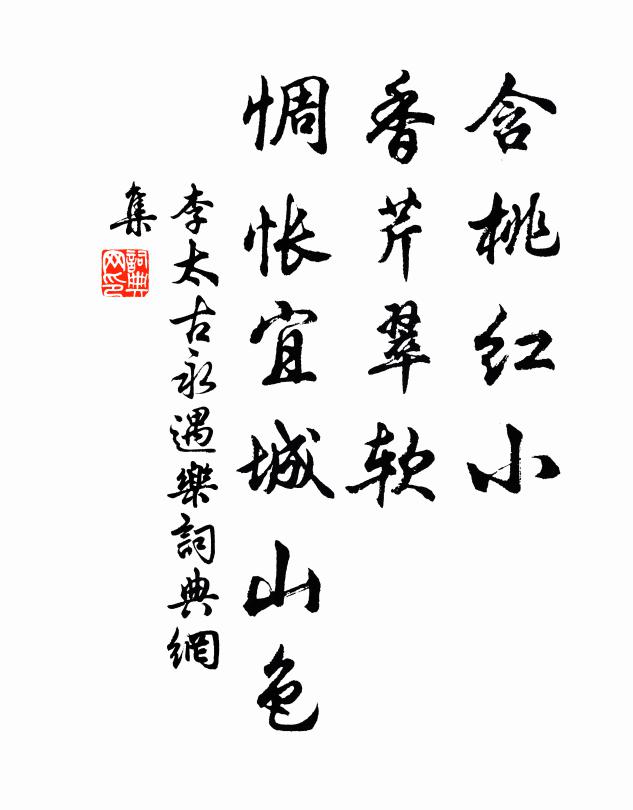 含桃红小
香芹翠软
惆怅宜城山色
李太古永遇樂詞典網
集
詞典网印